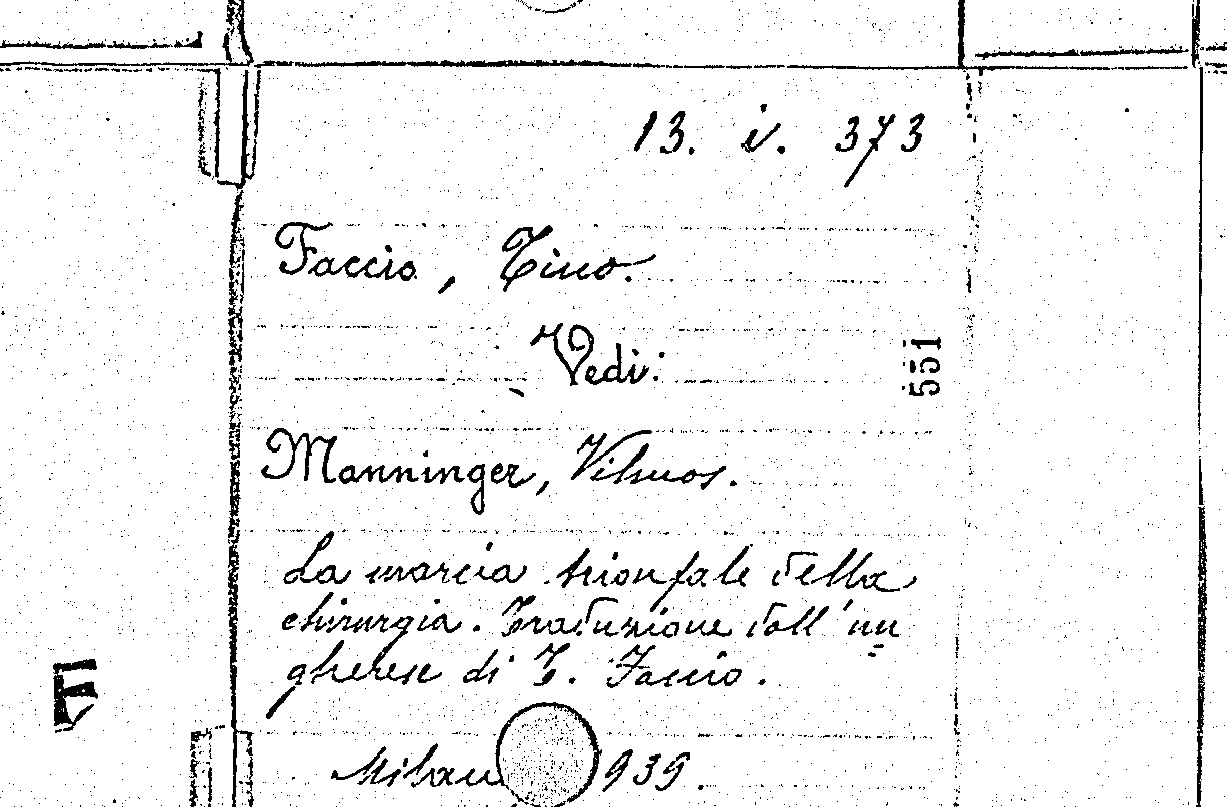 13. iv. 373
Faccio, Tino.
Vedi:
551
Manninger, Vilmos.
La marcia trionfale della
chirurgia. Traduzione dall'un=
gherese di T. Faccio.
Milano 939.
F